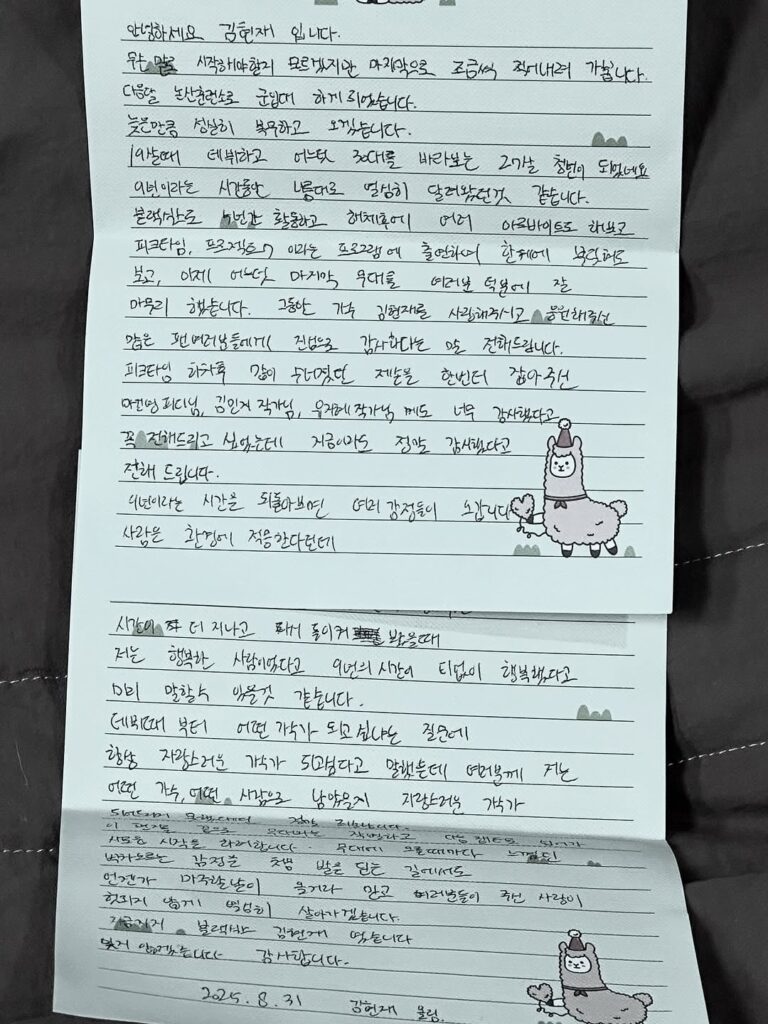 안녕하세요 김현재 입니다.
무슨 말로 시작해야할지 모르겠지만 마지막으로 조금씩 적어내려 가봅니다.
다음달 논산훈련소로 군입대 하게 되었습니다.
늦은만큼 성실히 복무하고 오겠습니다.
19살때 데뷔하고 어느덧 30대를 바라보는 27살 청년이 되었네요
9년이라는 시간동안 나름대로 열심히 달려왔던것 같습니다.
블랙식스로 활동하고 해체후에 여러 아르바이트도 해보고
피크타임, 프로젝트7 이라는 프로그램에 출연하여 한계에 부딪혀도
보고, 이제 어느덧 마지막 무대를 여러분 덕분에 잘
마무리 했습니다. 그동안 가수 김현재를 사랑해주시고 응원해주신
많은 팬여러분들에게 진심으로 감사하다는 말 전해드립니다.
피크타임 하차후 많이 제손을 한번더 잡아주신
피디님, 김인지 작가님, 작가님 께도 너무 감사했다고
꼭 전해드리고 싶었는데 지금이라도 정말 감사했다고
전해 드립니다.
9년이라는 시간을 되돌아보면 여러 감정들이 오갑니다
사람은 환경에 적응한다던데
시간이 더 지나고 과거 돌이켜 봤을때
저는 행복한 사람이었다고 9년의 시간이 티없이 행복했다고
말할수 있을것 같습니다.
데뷔때 부터 어떤 가수가 되고싶냐는 질문에
항상 자랑스러운 가수가 되고싶다고 말했는데 여러분께 저는
어떤 가수, 어떤 사람으로 남았을지 자랑스러운 가수가
되었는지
이 편지를 끝으로
시작을 무대에 오를때마다 느꼈던
벅차오르는 감정은 첫발을 딛는 길에서도
언젠가 마주할날이 올거라 믿고 여러분들이 주신 사랑이
헛되지 않게 열심히 살아가겠습니다.
지금까지 블랙식스 김현재 였습니다
잊지 않겠습니다 감사합니다.
2025. 8. 31 김현재 올림.